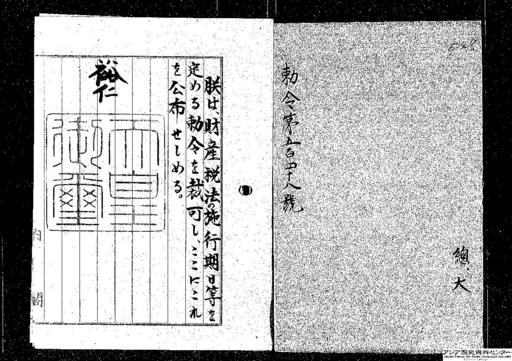 勅令第五百四十八號
總、大
朕は財産税法の施行期日等を
定める勅令を裁可し、ここにこれ
を公布せしめる。
裕仁
天皇
御璽
内閣
アジア歴史資料センター